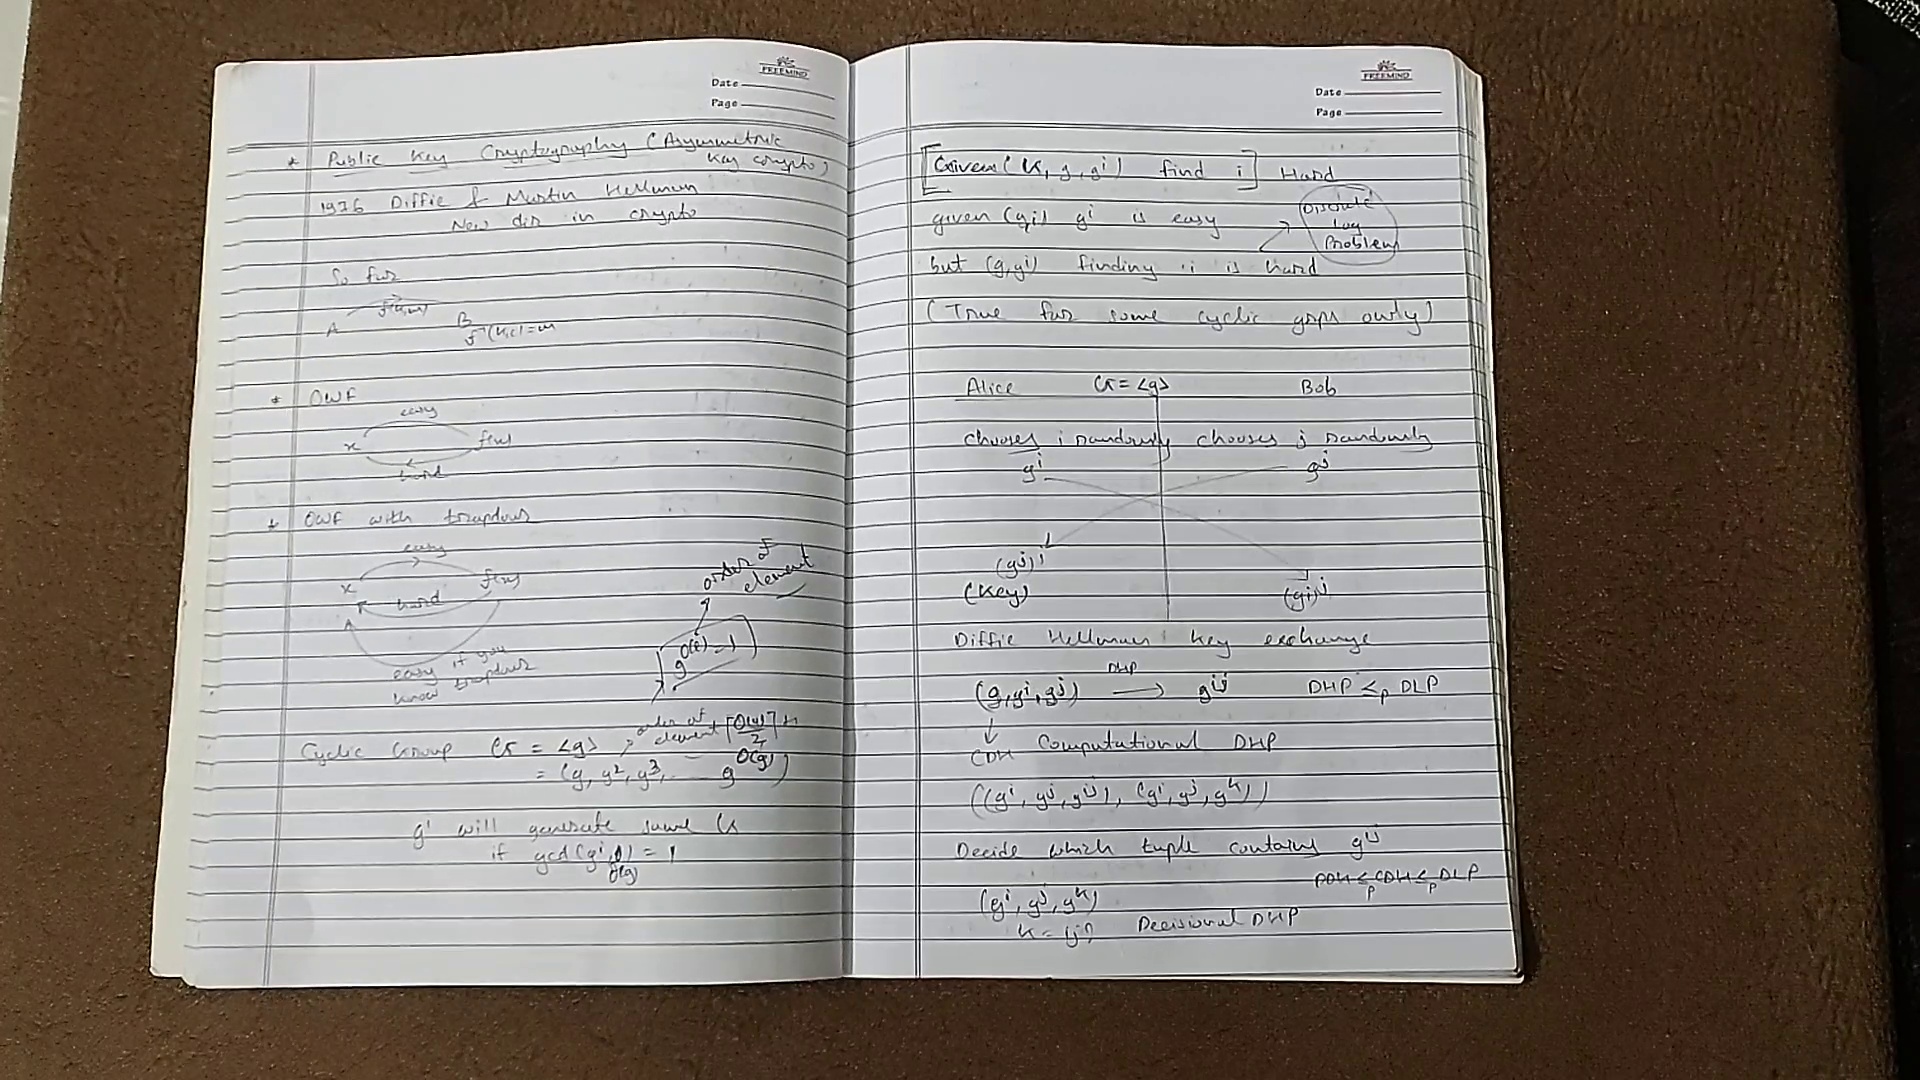 FREEMIND
Date
Page
* Public Key Cryptography (Asymmetric
Key crypto)
1976 Diffie & Martin Hellman
New dir in crypto
So far
f(k,m)
A B
f⁻¹(k,c)=m
* OWF
easy
x f(x)
hard
* OWF with trapdoor
easy
x f(x)
hard
easy if you
know trapdoor
order of
element
g^O(e) = 1
Cyclic Group G = <g>
order of
element
= (g, g², g³, ... g^O(g))
gⁱ will generate same G
if gcd(gⁱ, O(g)) = 1
FREEMIND
Date
Page
[Given (G, g, gⁱ) find i] Hard
given (g,i) gⁱ is easy
Discrete
Log
Problem
but (g,gⁱ) finding i is hard
(True for some cyclic grps only)
Alice G = <g> Bob
chooses i randomly chooses j randomly
gⁱ gʲ
(gʲ)ⁱ
(Key) (gⁱ)ʲ
Diffie Hellman Key exchange
DHP
(g,gⁱ,gʲ) → gⁱʲ DHP ≤p DLP
CDH Computational DHP
((gⁱ, gʲ, gⁱʲ), (gⁱ, gʲ, gᵏ))
Decide which tuple contains gⁱʲ
DDH ≤p CDH ≤p DLP
(gⁱ, gʲ, gᵏ)
k = ij? Decisional DHP